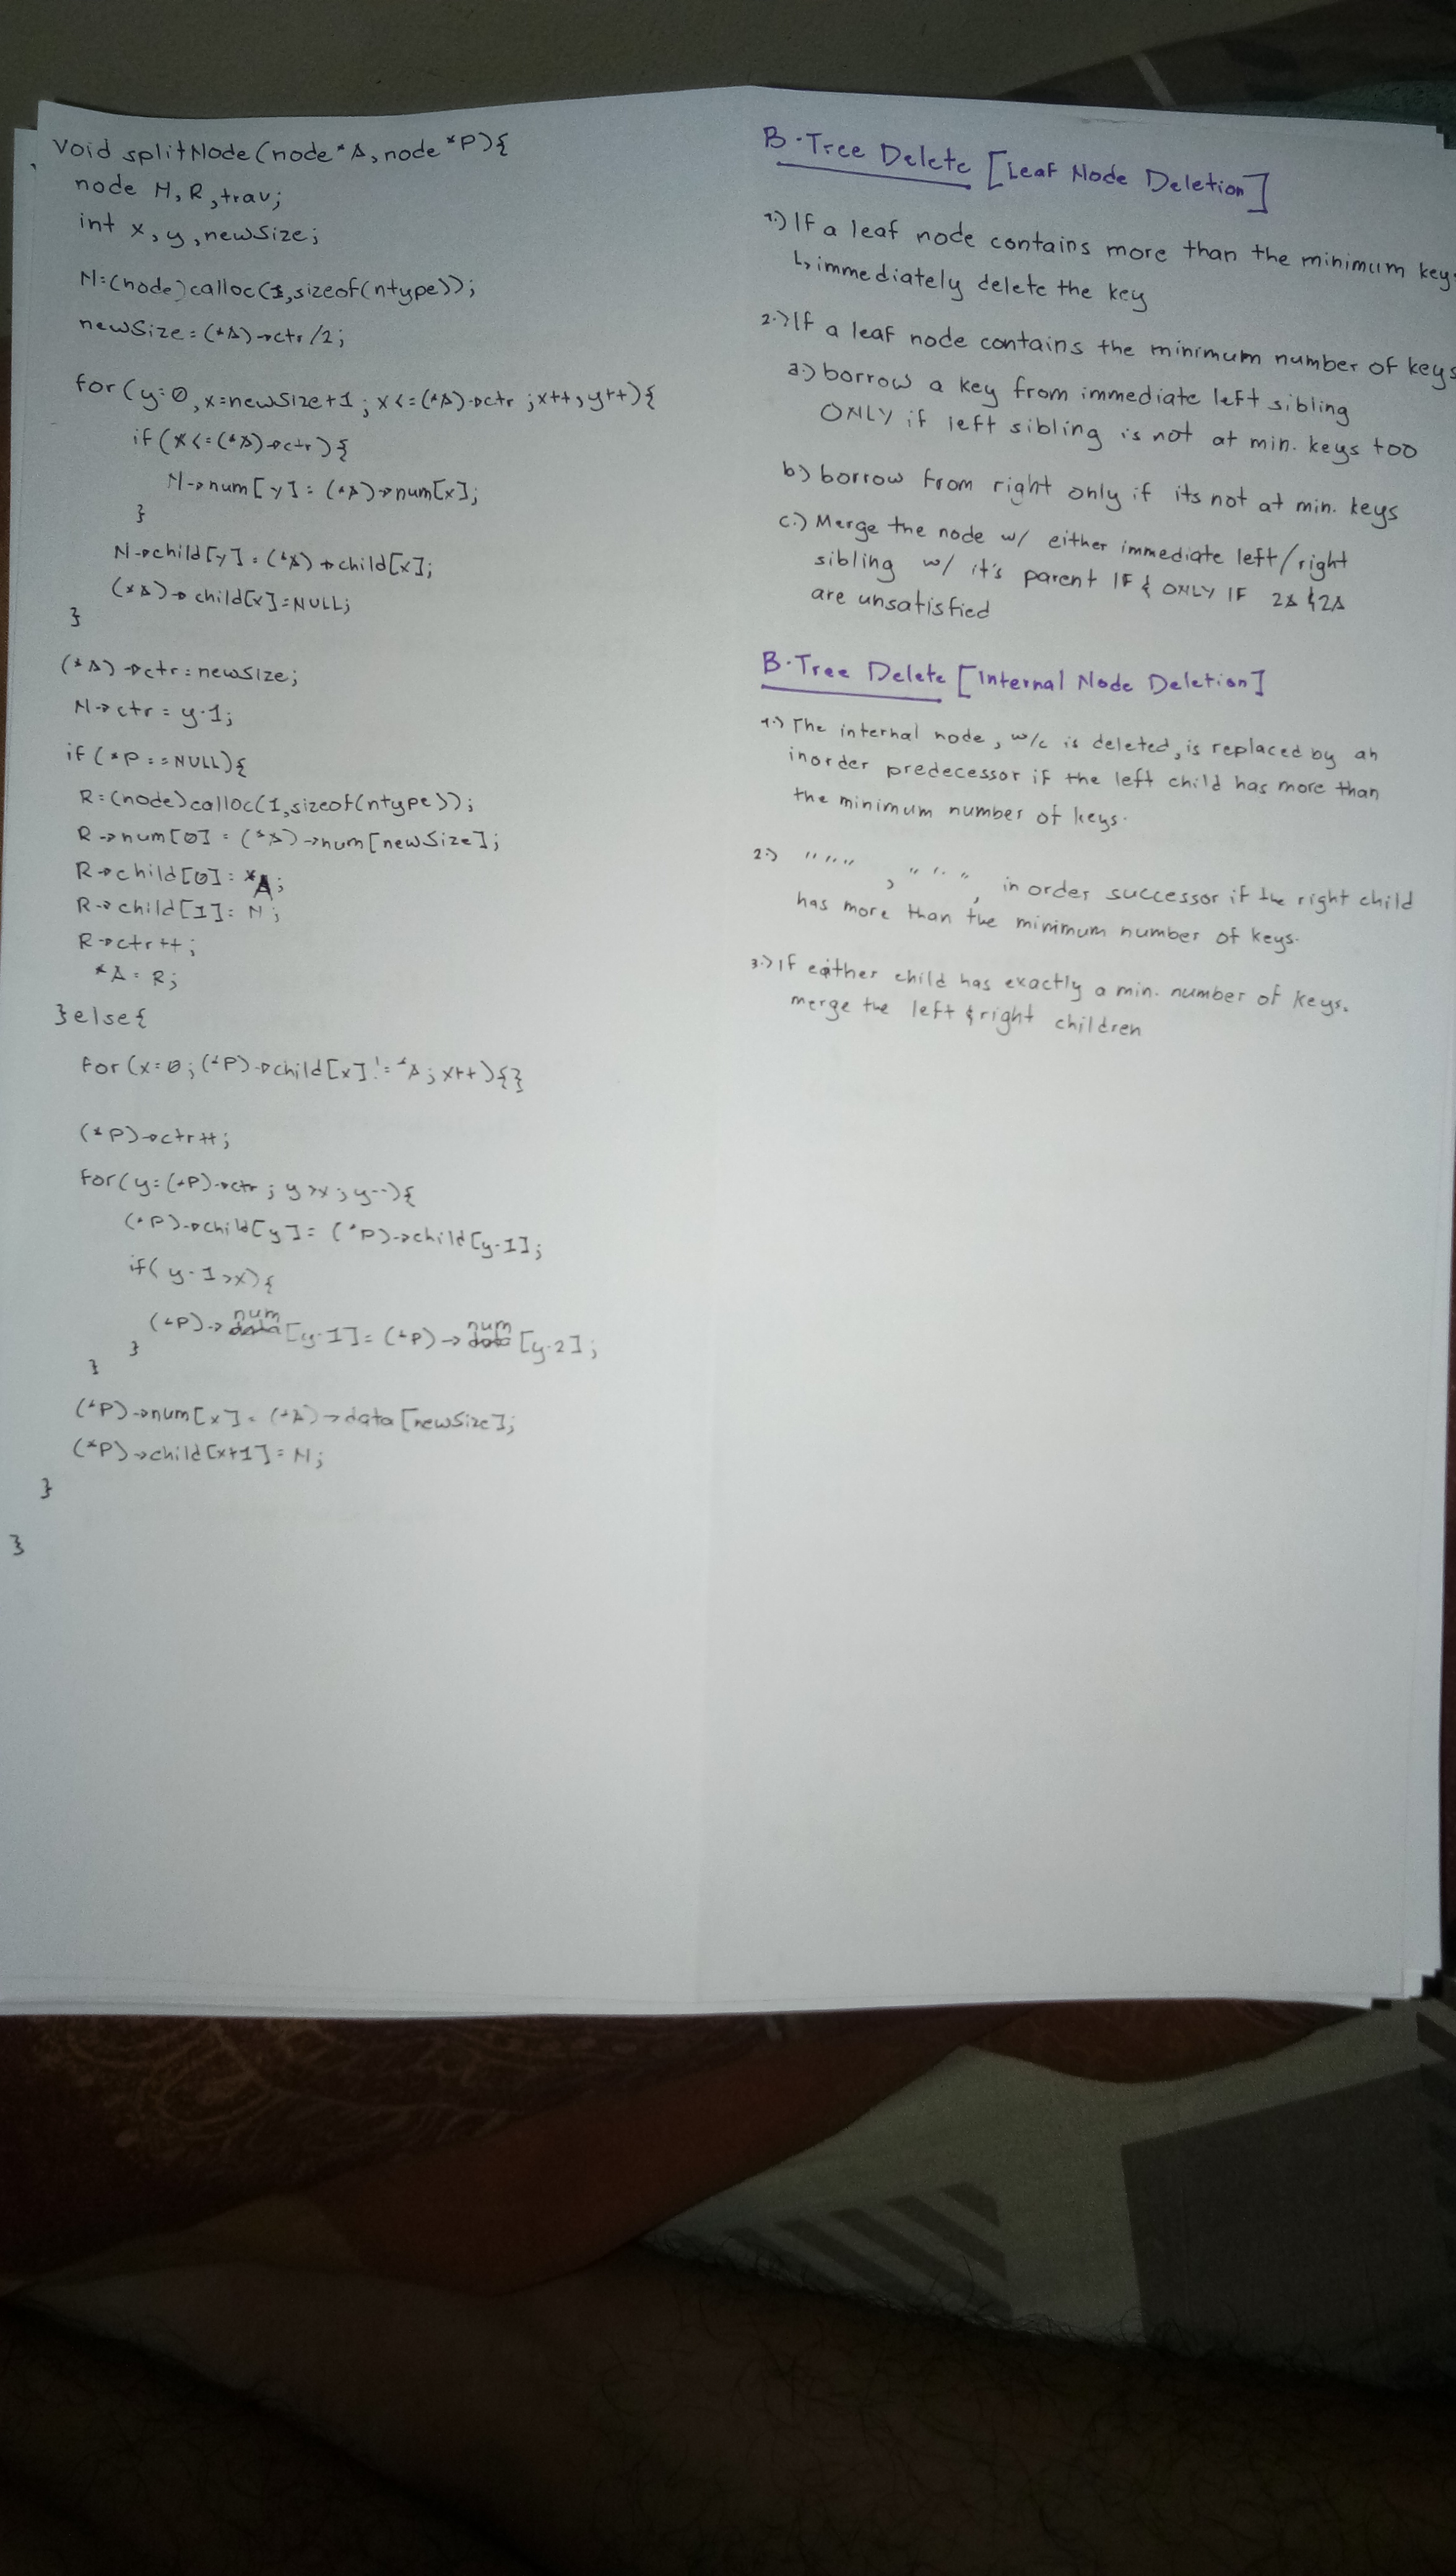 void splitNode(node *A, node *P){
node N, R, trav;
int x, y, newSize;
N=(node)calloc(1,sizeof(ntype));
newSize=(*A)->ctr/2;
for(y=0, x=newSize+1; x<=(*A)->ctr; x++, y++){
if(x<=(*A)->ctr){
N->num[y]=(*A)->num[x];
}
N->child[y]=(*A)->child[x];
(*A)->child[x]=NULL;
}
(*A)->ctr=newSize;
N->ctr=y-1;
if(*P==NULL){
R=(node)calloc(1,sizeof(ntype));
R->num[0]=(*A)->num[newSize];
R->child[0]=*A;
R->child[1]=N;
R->ctr++;
*A=R;
}else{
for(x=0;(*P)->child[x]!=*A;x++){}
(*P)->ctr++;
for(y=(*P)->ctr; y>x; y--){
(*P)->child[y]=(*P)->child[y-1];
if(y-1>x){
(*P)->num[y-1]=(*P)->num[y-2];
}
}
(*P)->num[x]=(*A)->data[newSize];
(*P)->child[x+1]=N;
}
}
B-Tree Delete [Leaf Node Deletion]
1.) If a leaf node contains more than the minimum key
↳ immediately delete the key
2.) If a leaf node contains the minimum number of keys
a.) borrow a key from immediate left sibling
ONLY if left sibling is not at min. keys too
b) borrow from right only if its not at min. keys
c.) Merge the node w/ either immediate left/right
sibling w/ it's parent IF & ONLY IF 2A & 2A
are unsatisfied
B-Tree Delete [Internal Node Deletion]
1.) The internal node, w/c is deleted, is replaced by an
inorder predecessor if the left child has more than
the minimum number of keys.
2.) " " " " , " " " , in order successor if the right child
has more than the minimum number of keys.
3.) If either child has exactly a min. number of keys.
merge the left & right children